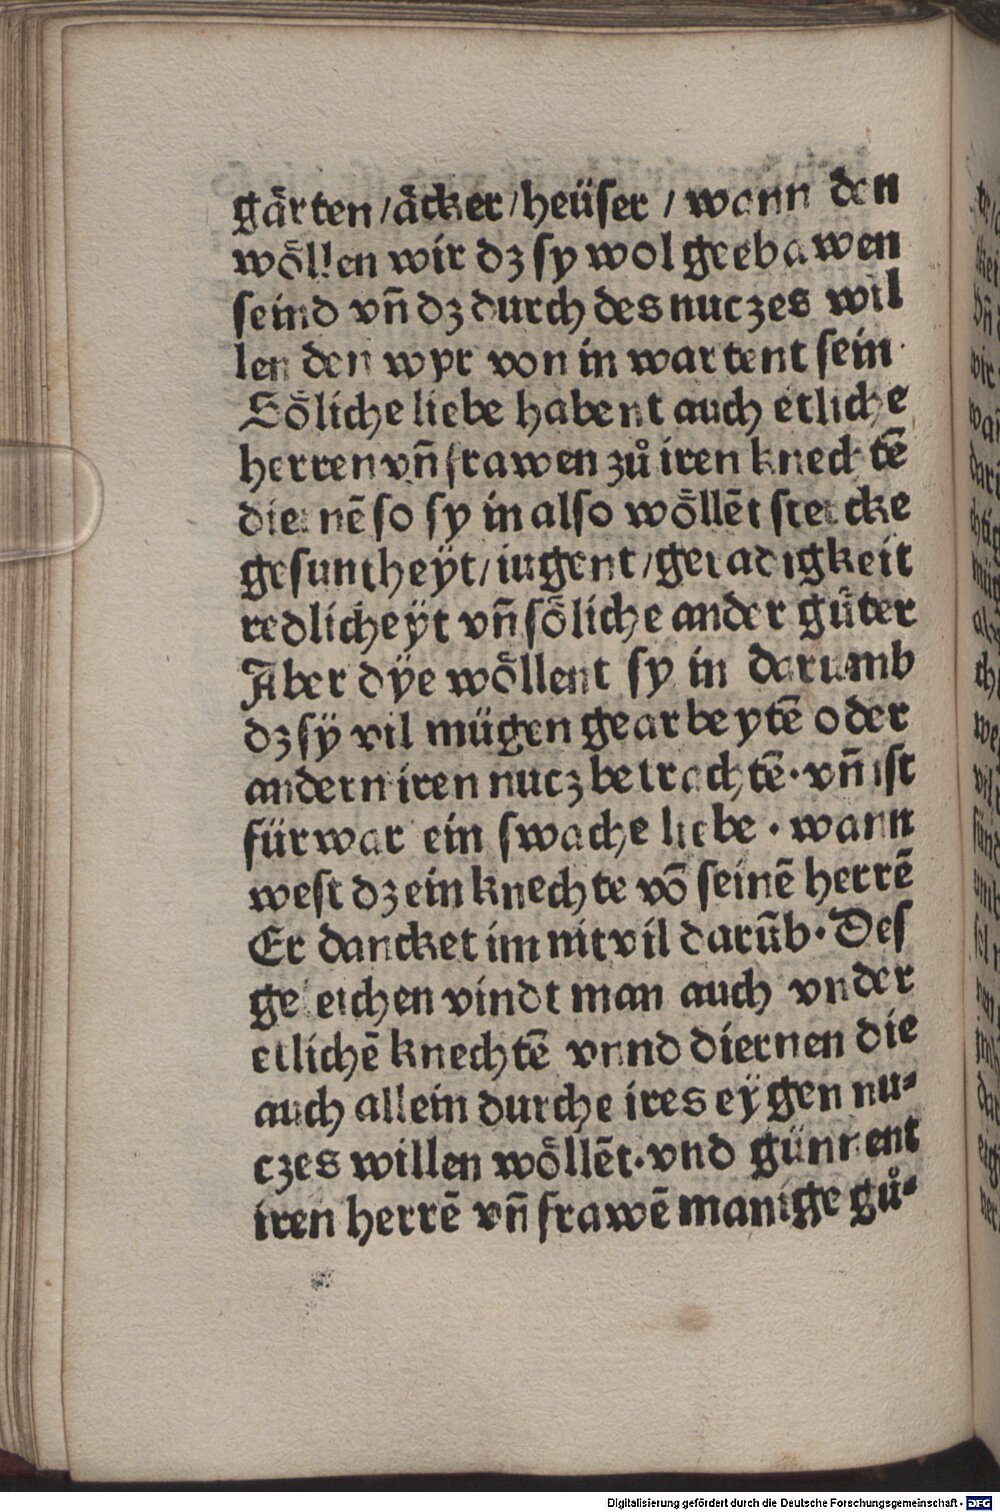 gaͤrten/aͤcker/heüser/wann den
woͤllen wir dz sy wol geebawen
seind vn̄ dz durch des nuczes wil
len den wyr von in wartent sein·
Soͤliche liebe habent auch etliche
herren vn̄ frawen zuͦ iren knechtē
diernē so sy in also woͤllēt stercke
gesuntheÿt/iugent/geradigkeit
redlicheÿt vn̄ soͤliche ander guͤter
Aber dÿe woͤllent sy in darumb
dz sÿ vil mügen gearbeytē oder
andern iren nucz betrachtē·vn̄ ist
fürwar ein swache liebe·wann
west dz ein knechte vō seinē herrē
Er dancket im nit vil darūb·Des
geleichen vindt man auch vnder
etlichē knechtē vnnd diernen die
auch allein durche ires eÿgen nu⸗
czes willen woͤllēt·vnd günnent
iren herrē vn̄ frawē manige guͦ⸗
Digitalisierung gefördert durch die Deutsche Forschungsgemeinschaft - DFG